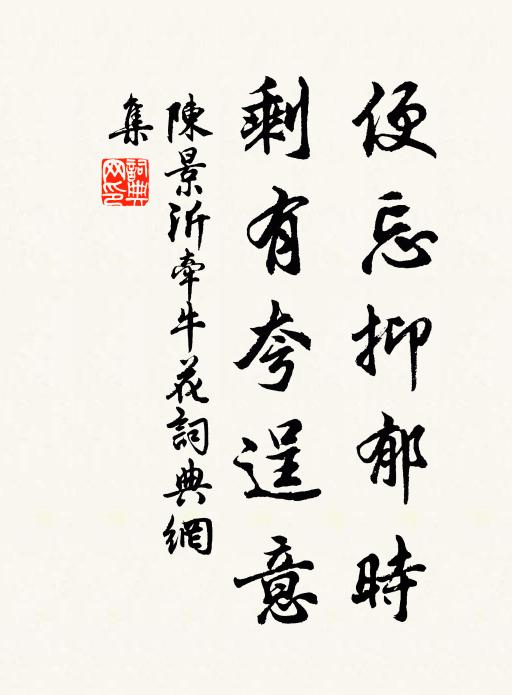 便忘抑郁時
剩有夸逞意
陳景沂牽牛花詞典網
集
詞典网印